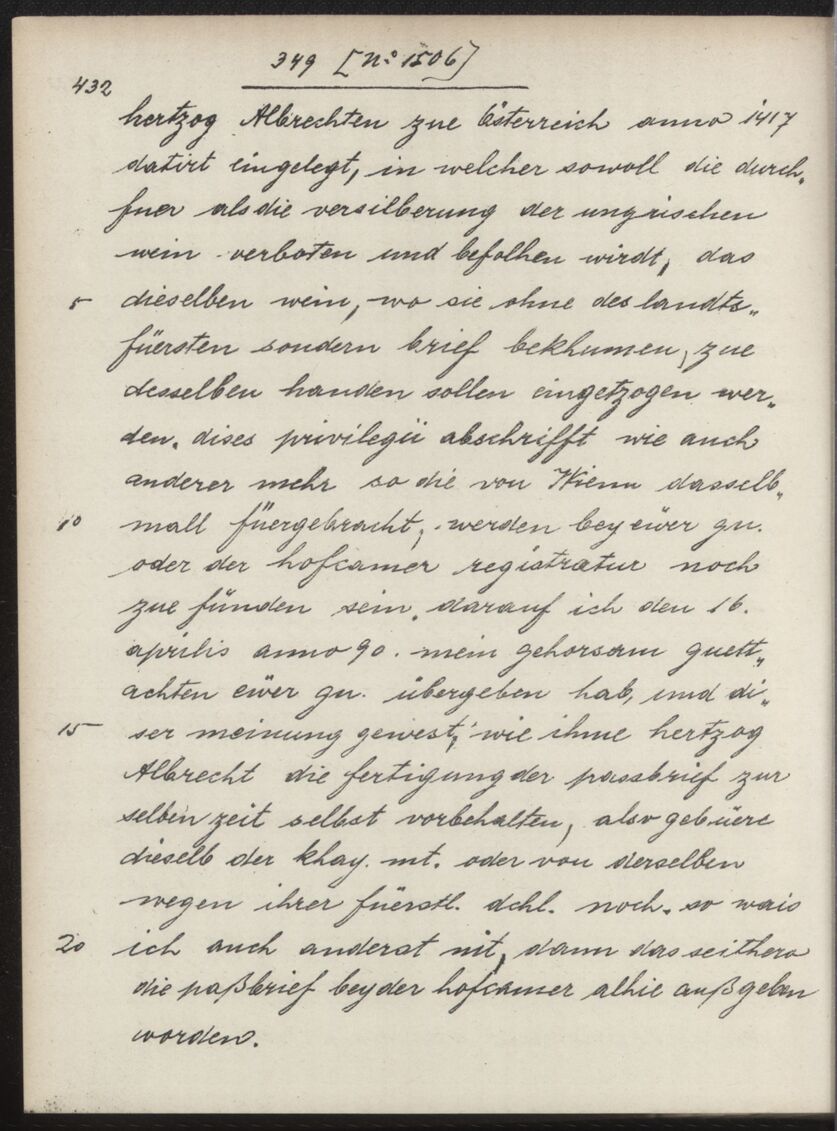 349 [No 1506]
432
hertzog Albrechten zue Österreich anno 1417
datirt eingelegt, in welcher sowoll die durch„
fuer als die versilberung der ungrischen
wein verboten und befolhen wirdt, das
5 dieselben wein, wo sie ohne des landts„
füersten sondern brief bekhumen, zue
desselben handen sollen eingetzogen wer„
den. dises privilegii abschrifft wie auch
anderer mehr so die von Wienn dasselb„
10 mall füergebracht, werden bey eüer gn.
oder der hofcamer registratur noch
zue fünden sein. darauf ich den 16.
aprilis anno 90. mein gehorsam guett„
achten eüer gn. übergeben hab, und di„
15 ser meinung gewest, wie ihme hertzog
Albrecht die fertigung der passbrief zur
selben zeit selbst vorbehalten, also gebüere
dieselb der khay. mt. oder von derselben
wegen ihrer füerstl. dchl. noch. so wais
20 ich auch anderst nit, dann das seithero
die paßbrief bey der hofcamer alhie außgeben
worden.